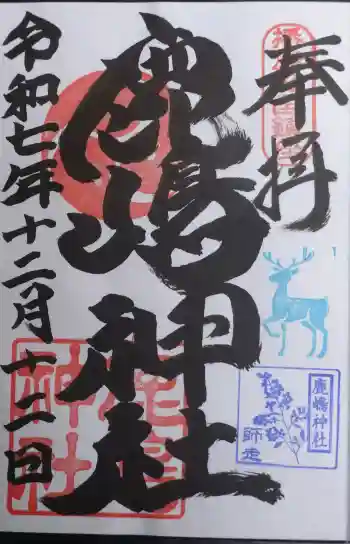 奉拝
鹿嶋神社
令和七年十二月十二日
鹿嶋神社
師走